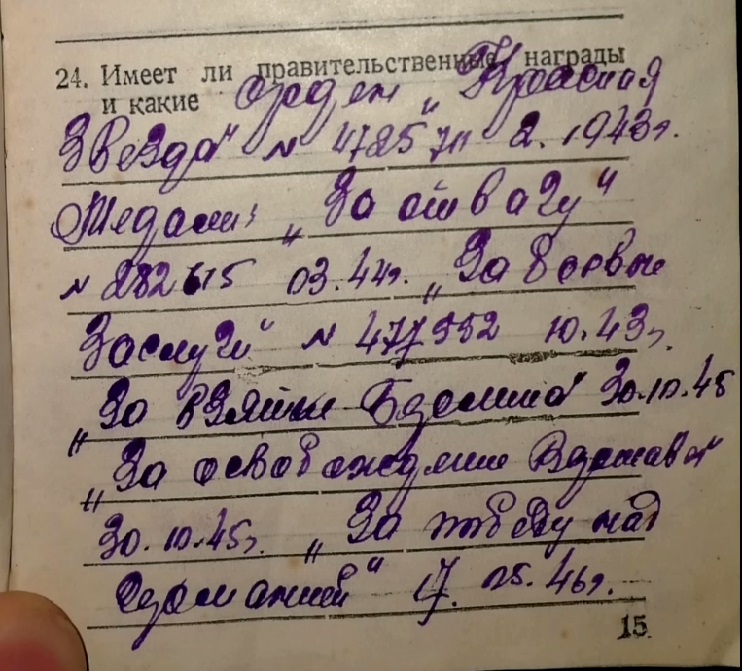 24. Имеет ли правительственные награды
и какие орден „Красная
Звезда" № 472571 2.1943г.
Медали: „За отвагу"
№ 282615 03.44г. „За боевые
Заслуги" № 477992 10.43г.
„За взятие Берлина" 30.10.45
„За освобождение Варшавы"
30.10.45г. „За победу над
Германией" 17. 05. 46г.
15